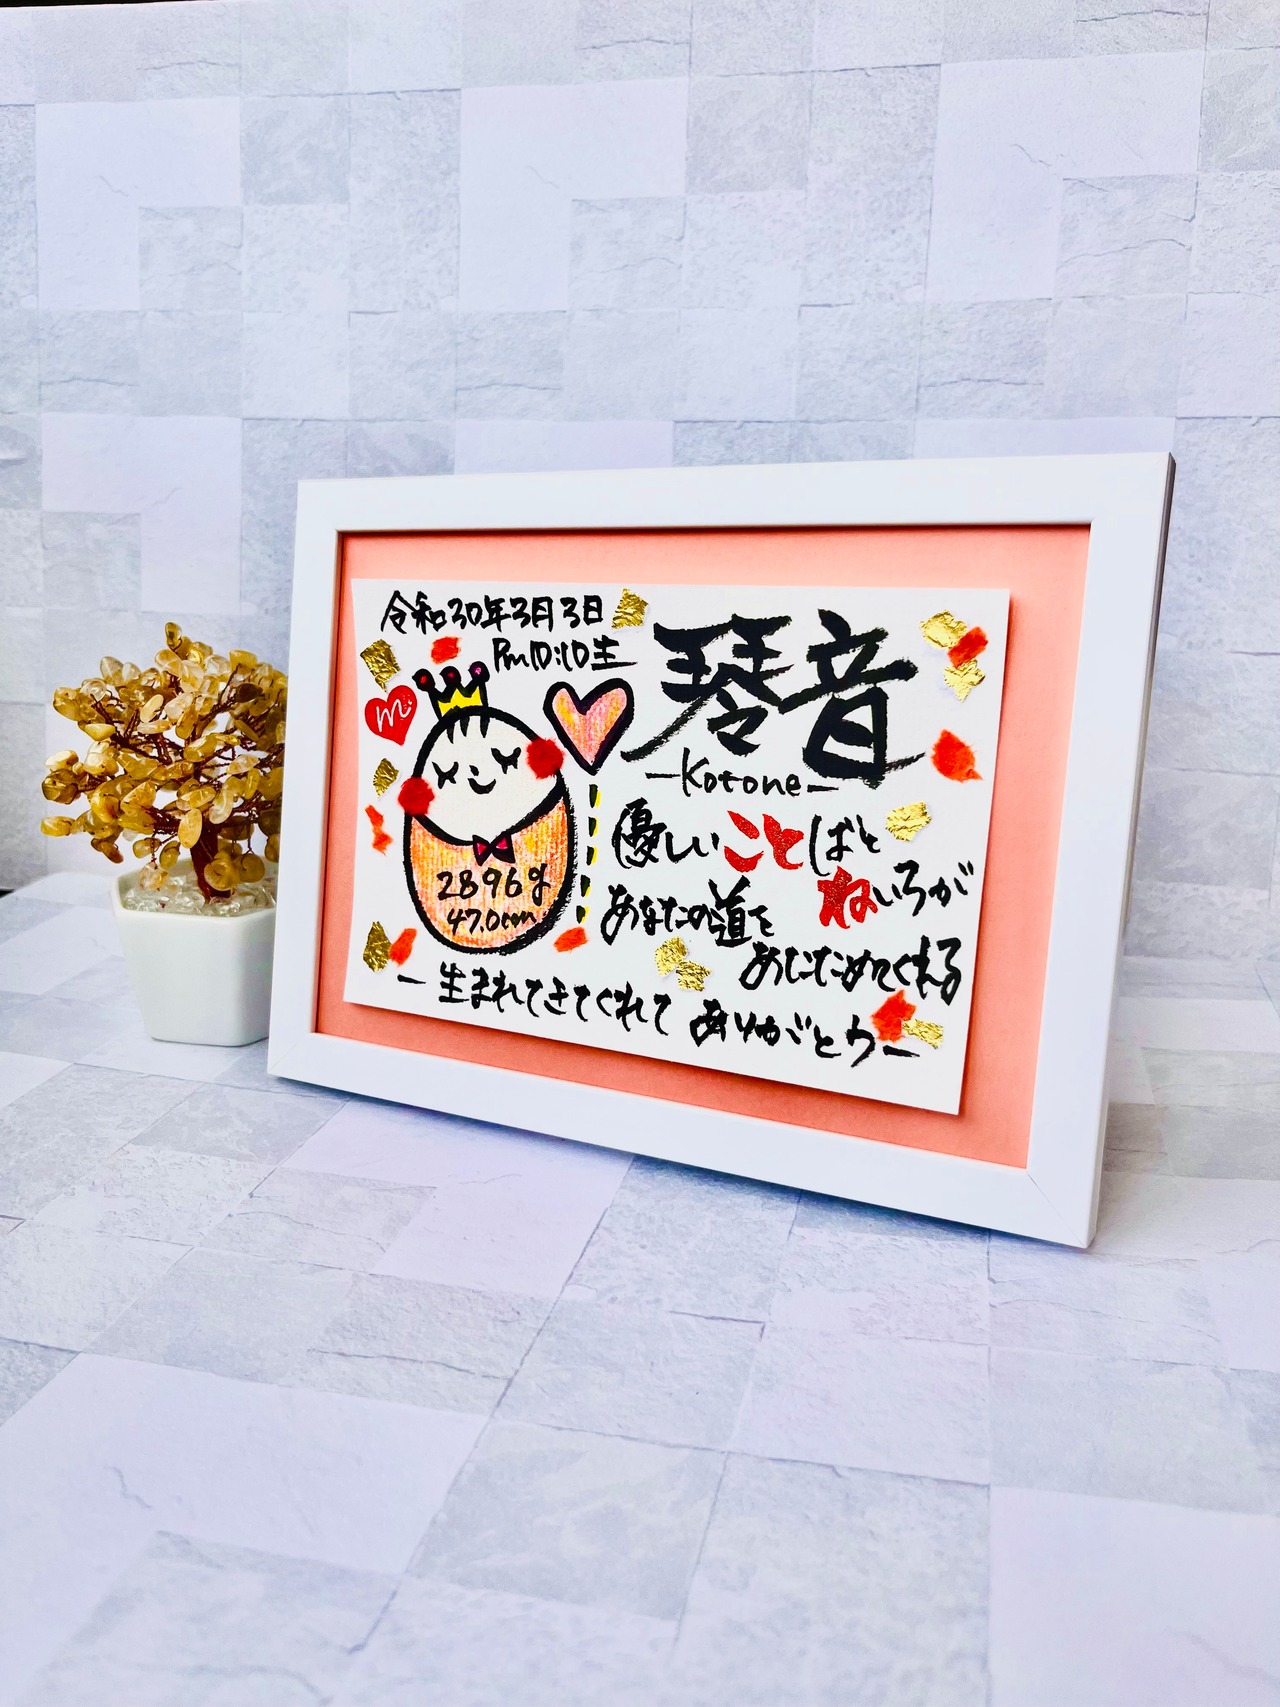 令和30年3月3日
Pm10:10生
m.
琴音
-Kotone-
優しいことばと
ねいろが
あなたの道を
あたためてくれる
2896g
47.0cm
- 生まれてきてくれて ありがとう -